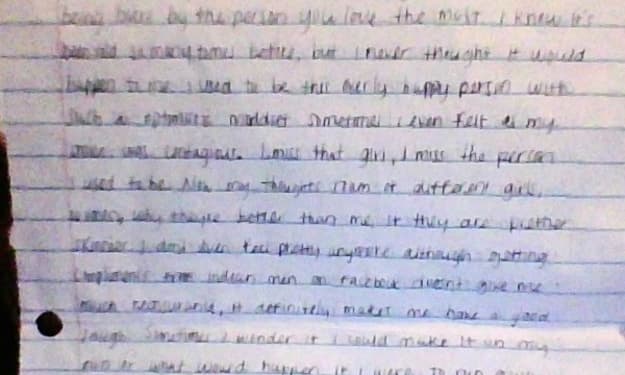 being by the person you love the most. I know it's
been told so many times before, but I never thought it would
happen to me. I used to be this overly happy person with
such a optimistic mindset sometimes I even felt as my
was contagious. I miss that girl, I miss the person
I used to be. Now my thoughts of different girls,
why they're better than me, if they are prettier
skinnier I don't even feel pretty anymore although getting
compliments from indian men on facebook doesn't give me
much reassurance, it definitely makes me have a good
laugh. Sometimes I wonder if I could make it on my
own or what would happen if I were to run